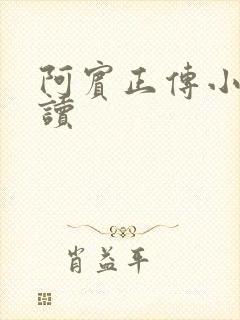 阿賓正傳小
讀
肖益平